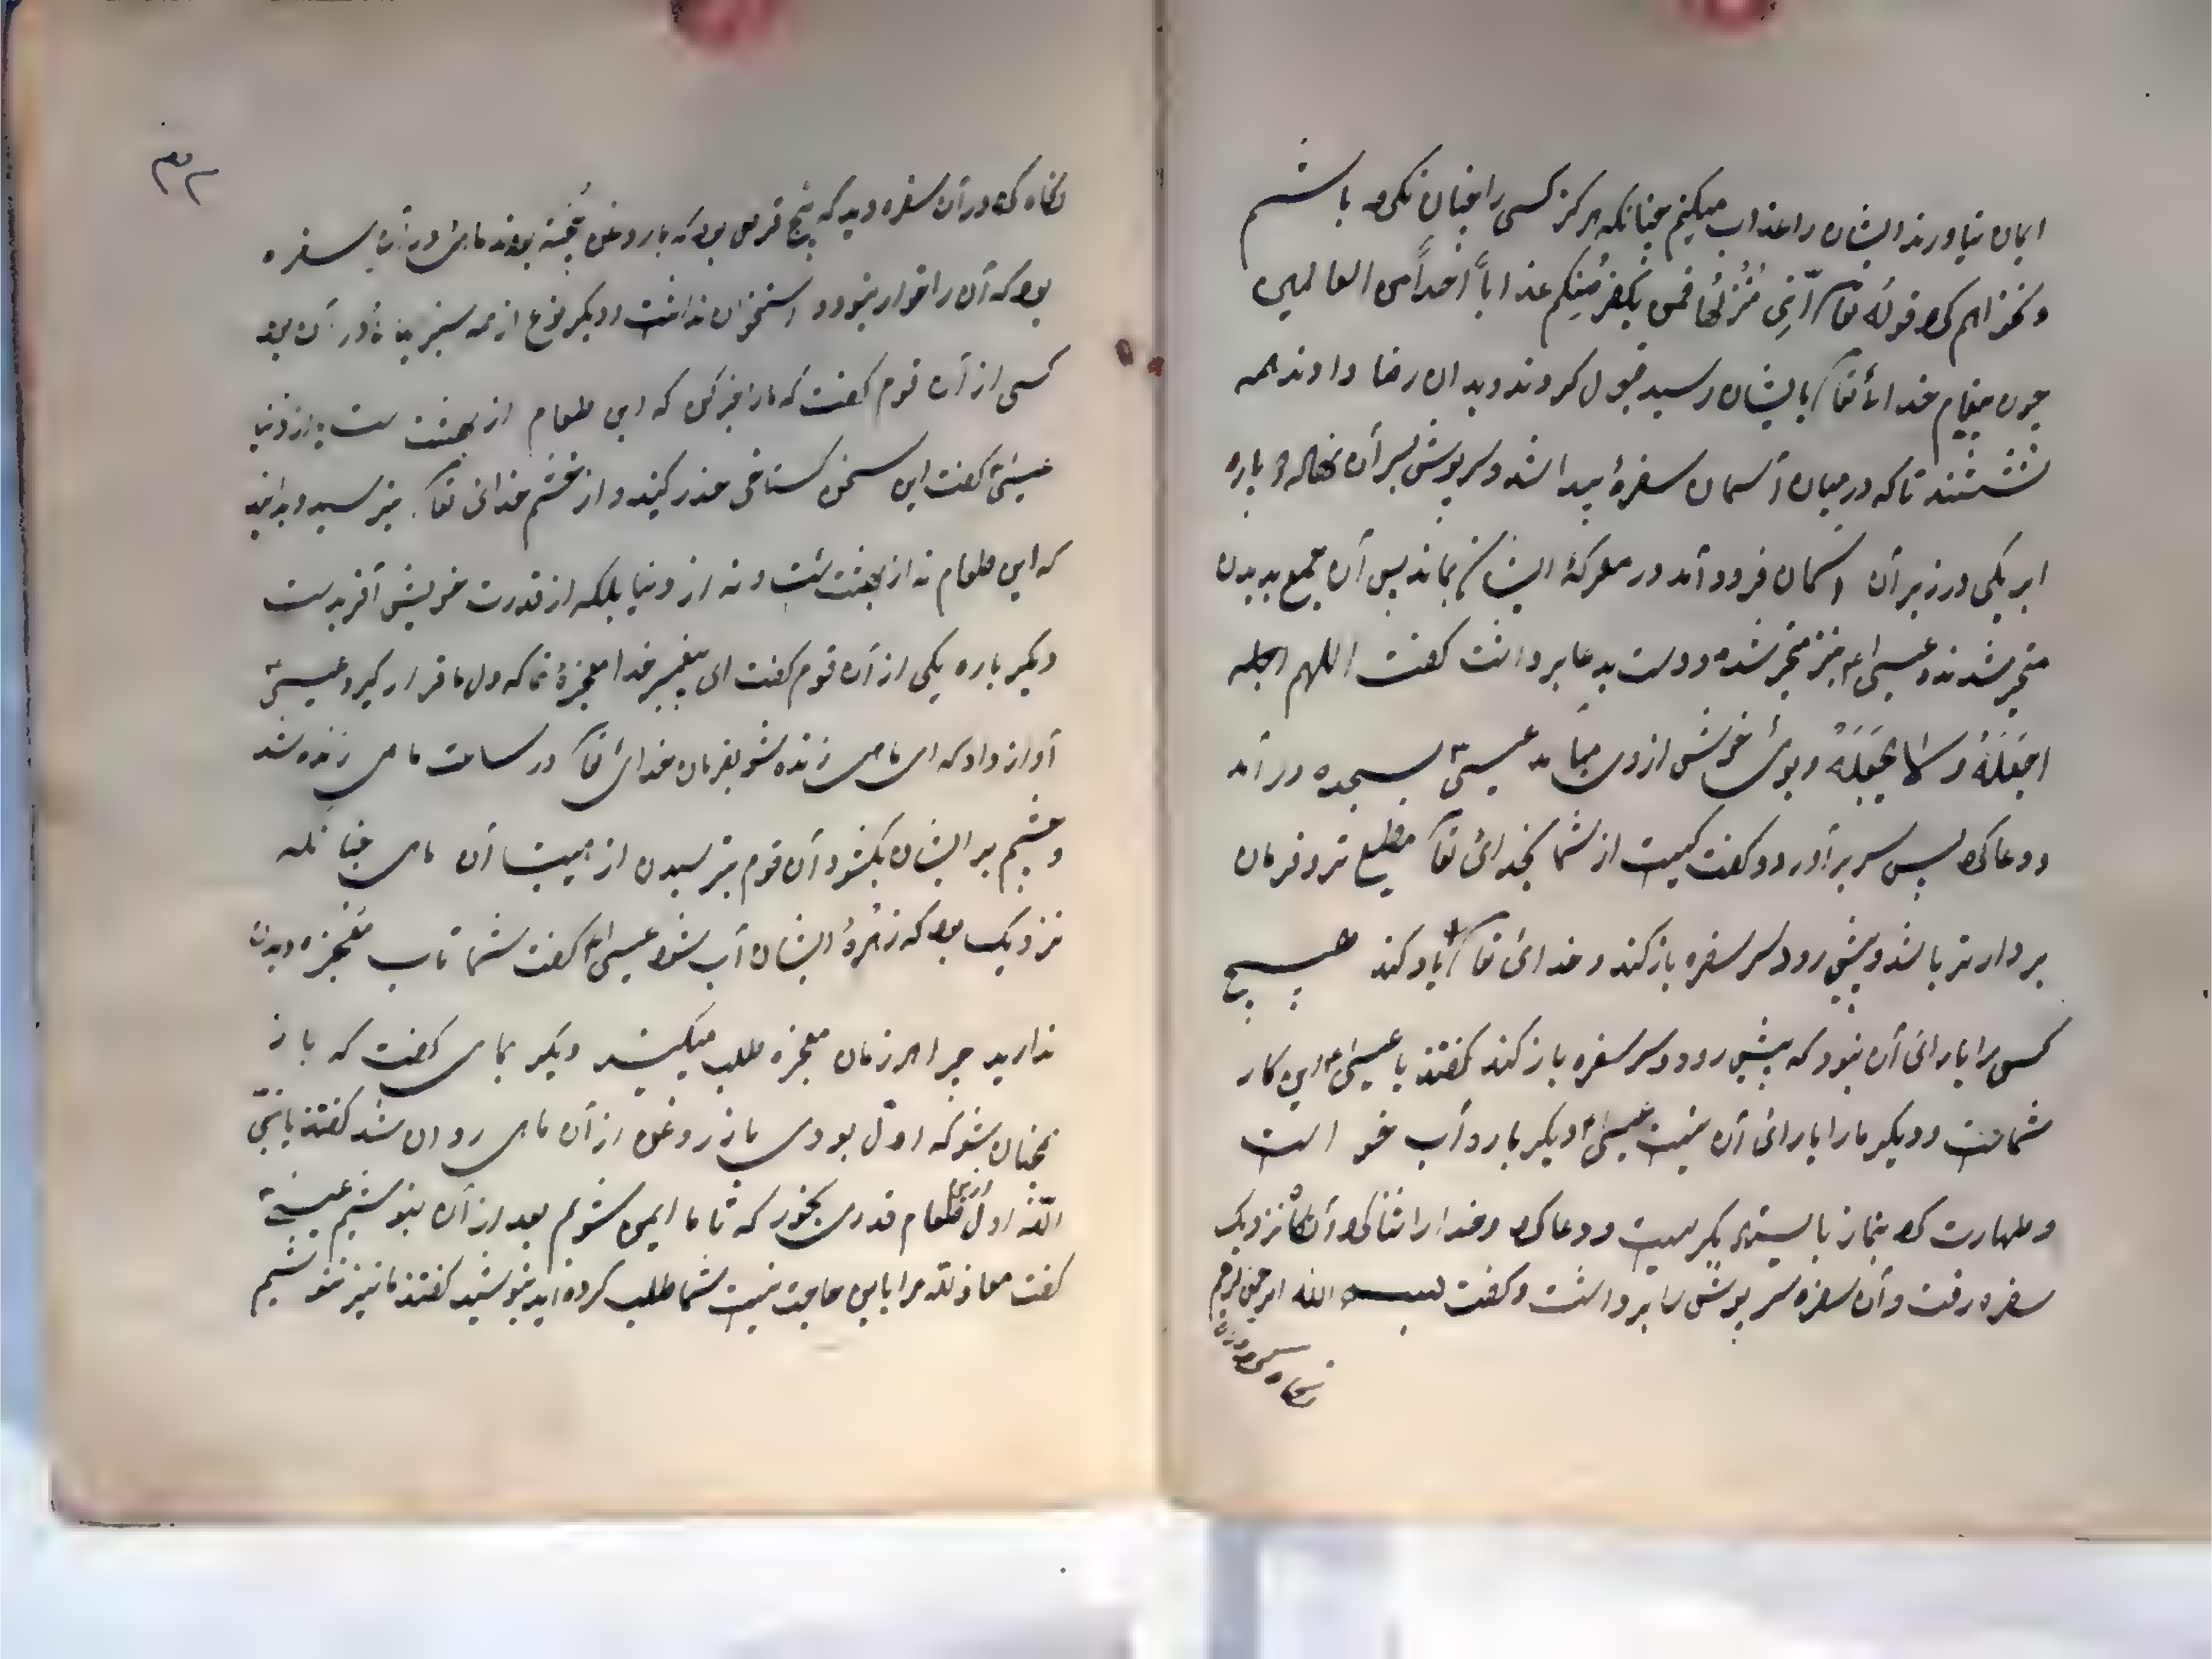 ایمان نیاورند ایشان را عذاب میکنم چنانکه هرگز کسی را چنان نکرده باشم
و نخواهم کرد قوله تعا انی منزلها فمن یکفر منکم عذاباً احداً من العالمین
چون پیغام خدائ تعا بایشان رسید قبول کردند و بدان رضا دادند همه
نشستند تا که در میان آسمان سفرۀ پیدا شد و سرپوش بسر آن نهاله و پاره
ابر یکی در زیر آن اسمان فرود آمد در معرکۀ ایشان بماند پس آن جمع بدیدن
متحیر شدند و عیسی نیز متحیر شده و دست بدعا برداشت گفت اللهم اجعله
اجعله و لا تجعله و بوئ خوش از وی میآمد عیسی بسجده درآمد
و دعا کرد پس سر برآورد و گفت کیست از شما بخدائ تعا مطیع تر و فرمان
بردارتر باشد و پیش رود سر سفره باز کند و خدائ تعا یاد کند هیچ
کس را یارائ آن نبود که پیش رود و سر سفره باز کند گفتند یا عیسی این کار
شماست و دیگر ما را یارائ آن نیست عیسی دیگر باره آب خواست
و طهارت کرد بنماز بایستاد بگریست و دعا کرد و خدا را ثنا کرد آنگاه نزدیک
سفره رفت و آن سفره سرپوش را برداشت و گفت بسم الله الرحمن الرحیم
نگاه کرد در آن
نگاه کرد در آن سفره دید که پنج قرص بود که با روغن پخته بودند ماهی در آن سفره
بود که آن را خار نبود و استخوان نداشت و دیگر نوع از همه سبزیها در آن بود
کسی از آن قوم گفت که ما را خبر کن که این طعام از بهشت ست یا از دنیا
عیسی گفت این سخن گستاخی حذر کنید و از خشم خدائ تعا بترسید و بدانید
که این طعام نه از بهشت ست و نه از دنیا بلکه از قدرت خویش آفریدست
دیگر باره یکی از آن قوم گفت ای پیغمبر خدا معجزۀ نما که دل ما قرار گیرد عیسی
آواز داد که ای ماهی زنده شو بفرمان خدائ تعا در ساعت ماهی زنده شد
و چشم بر ایشان بکشود آن قوم بترسیدن از هیبت آن ماهی چنانکه
نزدیک بود که زهرۀ ایشان آب شود عیسی گفت شما تاب معجزه دیدن
ندارید چرا هر زمان معجزه طلب میکنید دیگر بماهی گفت که باز
همچنان شو که اول بودی باز روغن از آن ماهی روان شد گفتند یا نبی
الله اول ازین طعام قدری بخور که تا ما ایمن شویم بعد از آن بنوشیم عیسی
گفت معاذ الله مرا باین حاجت نیست شما طلب کرده اید بنوشید گفتند ما نیز ننوشیم